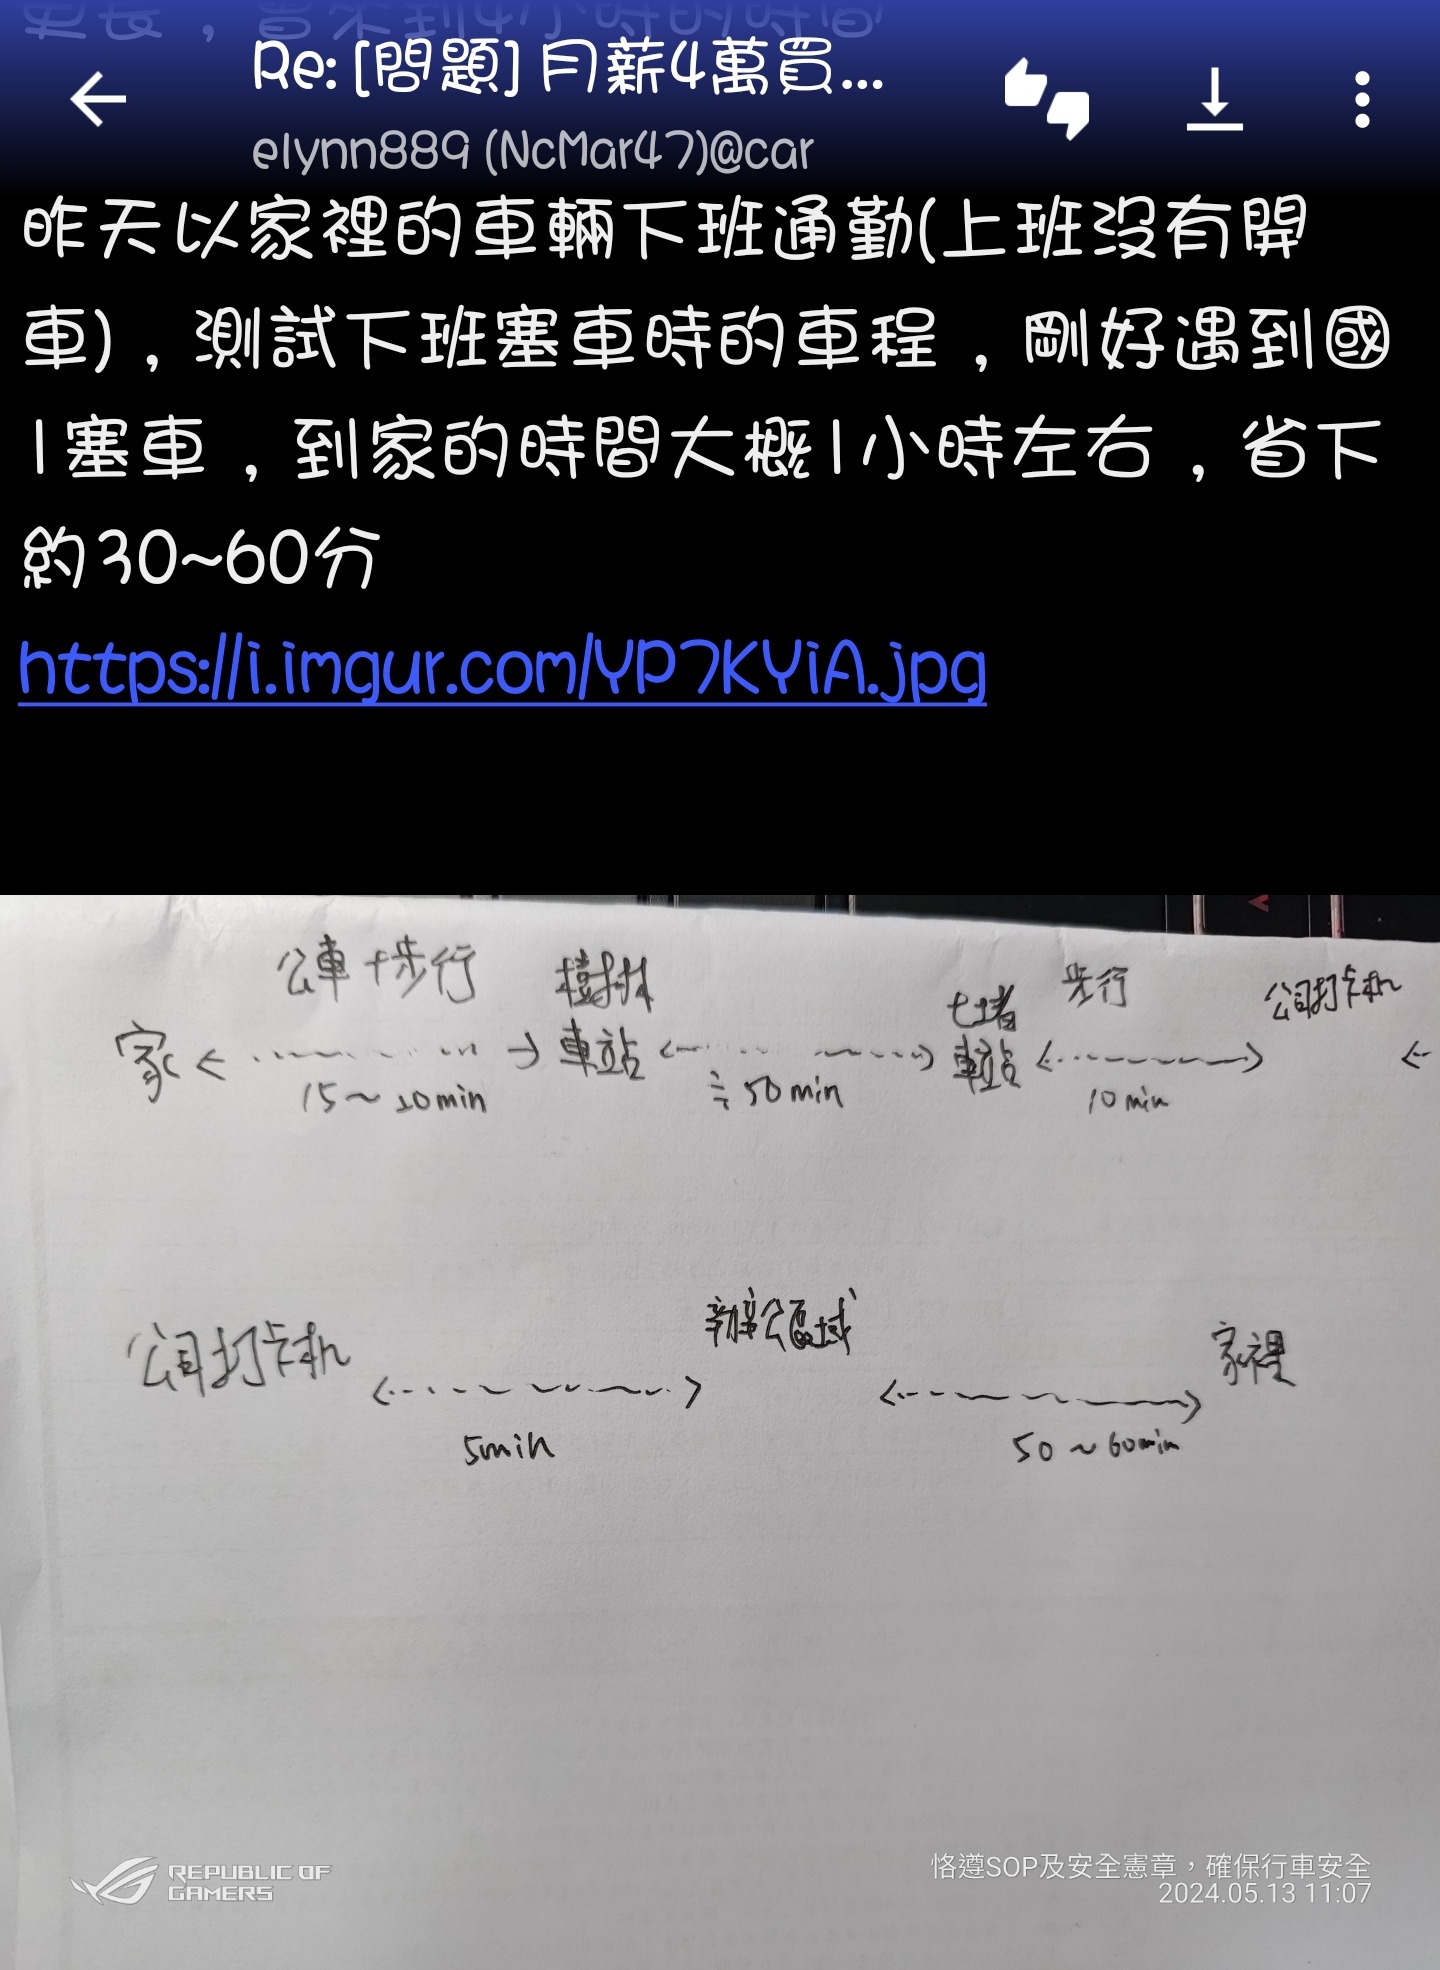 更長，曾來到4小時的時間
Re: [問題] 月薪4萬買...
elynn889 (NcMar47)@car
昨天以家裡的車輛下班通勤(上班沒有開
車)，測試下班塞車時的車程，剛好遇到國
1塞車，到家的時間大概1小時左右，省下
約30~60分
https://i.imgur.com/YP7KYiA.jpg
公車+步行 樹林 七堵 步行 公司打卡机
家 車站 車站
15~20min ≒50min 10min
公司打卡机 辦公區域 家裡
5min 50~60min
REPUBLIC OF
GAMERS
恪遵SOP及安全憲章，確保行車安全
2024.05.13 11:07